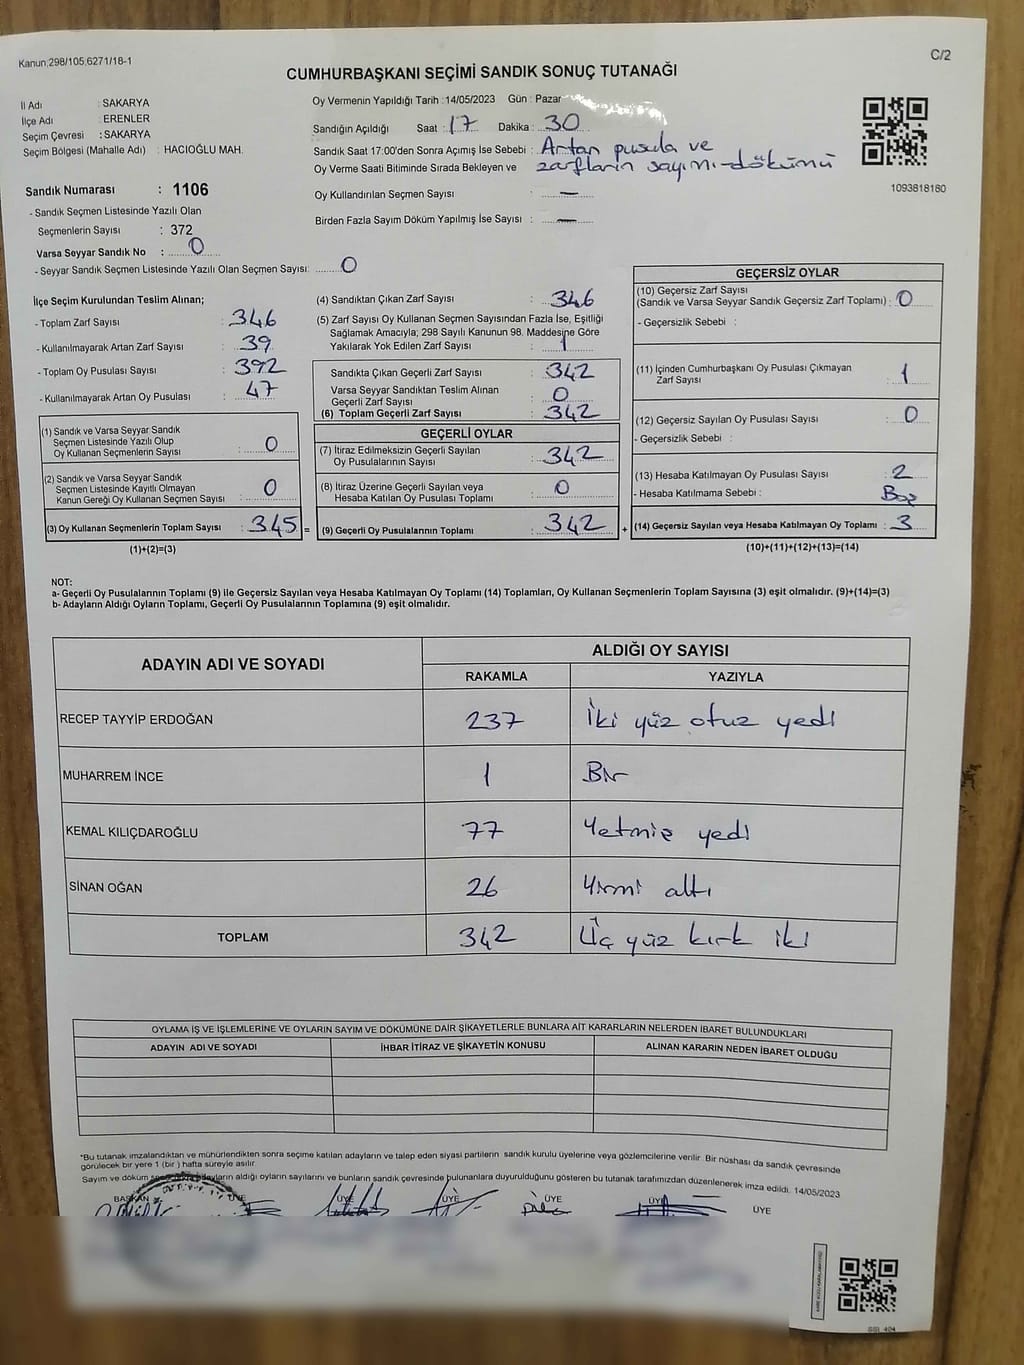 Kanun;298/105,6271/18-1
C/2
CUMHURBAŞKANI SEÇİMİ SANDIK SONUÇ TUTANAĞI
İl Adı : SAKARYA
İlçe Adı : ERENLER
Seçim Çevresi : SAKARYA
Seçim Bölgesi (Mahalle Adı) : HACIOĞLU MAH.
Sandık Numarası : 1106
- Sandık Seçmen Listesinde Yazılı Olan
Seçmenlerin Sayısı : 372
Varsa Seyyar Sandık No : 0
- Seyyar Sandık Seçmen Listesinde Yazılı Olan Seçmen Sayısı: 0
Oy Vermenin Yapıldığı Tarih :14/05/2023 Gün : Pazar
Sandığın Açıldığı Saat : 17 Dakika : 30
Sandık Saat 17:00'den Sonra Açımış İse Sebebi : Artan pusula ve
Oy Verme Saati Bitiminde Sırada Bekleyen ve zarfların sayımı-dökümü
Oy Kullandırılan Seçmen Sayısı : —
Birden Fazla Sayım Döküm Yapılmış İse Sayısı : —
1093818180
İlçe Seçim Kurulundan Teslim Alınan;
- Toplam Zarf Sayısı : 346
- Kullanılmayarak Artan Zarf Sayısı : 39
- Toplam Oy Pusulası Sayısı : 392
- Kullanılmayarak Artan Oy Pusulası : 47
(1) Sandık ve Varsa Seyyar Sandık
Seçmen Listesinde Yazılı Olup
Oy Kullanan Seçmenlerin Sayısı : 0
(2) Sandık ve Varsa Seyyar Sandık
Seçmen Listesinde Kayıtlı Olmayan
Kanun Gereği Oy Kullanan Seçmen Sayısı : 0
(3) Oy Kullanan Seçmenlerin Toplam Sayısı : 345 =
(1)+(2)=(3)
(4) Sandıktan Çıkan Zarf Sayısı : 346
(5) Zarf Sayısı Oy Kullanan Seçmen Sayısından Fazla İse, Eşitliği
Sağlamak Amacıyla; 298 Sayılı Kanunun 98. Maddesine Göre
Yakılarak Yok Edilen Zarf Sayısı : 1
Sandıkta Çıkan Geçerli Zarf Sayısı : 342
Varsa Seyyar Sandıktan Teslim Alınan
Geçerli Zarf Sayısı : 0
(6) Toplam Geçerli Zarf Sayısı : 342
GEÇERLİ OYLAR
(7) İtiraz Edilmeksizin Geçerli Sayılan
Oy Pusulalarının Sayısı : 342
(8) İtiraz Üzerine Geçerli Sayılan veya
Hesaba Katılan Oy Pusulası Toplamı : 0
(9) Geçerli Oy Pusulalarının Toplamı : 342 +
GEÇERSİZ OYLAR
(10) Geçersiz Zarf Sayısı
(Sandık ve Varsa Seyyar Sandık Geçersiz Zarf Toplamı) : 0
- Geçersizlik Sebebi :
(11) İçinden Cumhurbaşkanı Oy Pusulası Çıkmayan
Zarf Sayısı : 1
(12) Geçersiz Sayılan Oy Pusulası Sayısı : 0
- Geçersizlik Sebebi :
(13) Hesaba Katılmayan Oy Pusulası Sayısı : 2
- Hesaba Katılmama Sebebi : Boş
(14) Geçersiz Sayılan veya Hesaba Katılmayan Oy Toplamı : 3
(10)+(11)+(12)+(13)=(14)
NOT:
a- Geçerli Oy Pusulalarının Toplamı (9) ile Geçersiz Sayılan veya Hesaba Katılmayan Oy Toplamı (14) Toplamları, Oy Kullanan Seçmenlerin Toplam Sayısına (3) eşit olmalıdır. (9)+(14)=(3)
b- Adayların Aldığı Oyların Toplamı, Geçerli Oy Pusulalarının Toplamına (9) eşit olmalıdır.
ADAYIN ADI VE SOYADI ALDIĞI OY SAYISI
RAKAMLA YAZIYLA
RECEP TAYYİP ERDOĞAN 237 İki yüz otuz yedi
MUHARREM İNCE 1 Bir
KEMAL KILIÇDAROĞLU 77 Yetmiş yedi
SİNAN OĞAN 26 Yirmi altı
TOPLAM 342 Üç yüz kırk iki
OYLAMA İŞ VE İŞLEMLERİNE VE OYLARIN SAYIM VE DÖKÜMÜNE DAİR ŞİKAYETLERLE BUNLARA AİT KARARLARIN NELERDEN İBARET BULUNDUKLARI
ADAYIN ADI VE SOYADI İHBAR İTİRAZ VE ŞİKAYETİN KONUSU ALINAN KARARIN NEDEN İBARET OLDUĞU
*Bu tutanak imzalandıktan ve mühürlendikten sonra seçime katılan adayların ve talep eden siyasi partilerin sandık kurulu üyelerine veya gözlemcilerine verilir. Bir nüshası da sandık çevresinde
görülecek bir yere 1 (bir ) hafta süreyle asılır.
Sayım ve döküm adayların aldığı oyların sayılarını ve bunların sandık çevresinde bulunanlara duyurulduğunu gösteren bu tutanak tarafımızdan düzenlenerek imza edildi. 14/05/2023
BAŞKAN ÜYE ÜYE ÜYE ÜYE ÜYE ÜYE